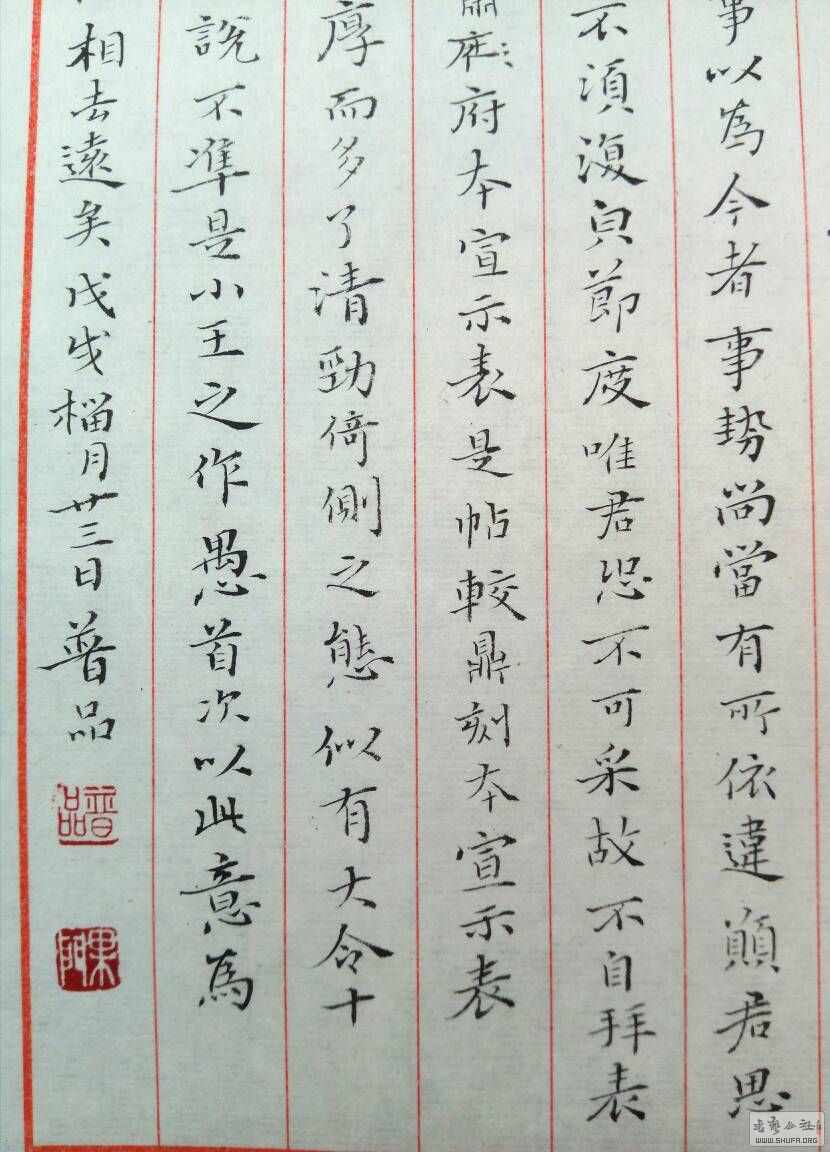 事以為今者事勢尚當有所依違願君思
不須復皃節度唯君恐不可采故不自拜表
府本宣示表是帖較鼎刻本宣示表
厚而多了清勁倚側之態似有大令十
說不準是小王之作愚首次以此意為
相去遠矣戊戌榴月廿三日普品
普品
WWW.SHUFA.ORG